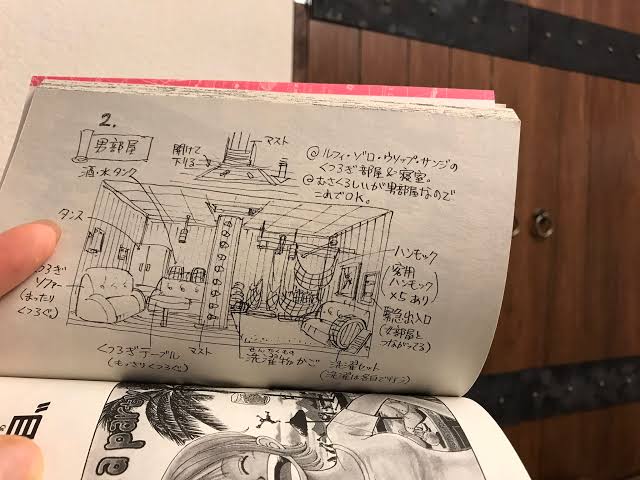 2.
男部屋
開けて
下りる
マスト
@ルフィ・ゾロ・ウソップ・サンジの
くつろぎ部屋&寝室。
@むさくるしいが男部屋なので
これでOK。
酒・水タンク
タンス
ハンモック
(客用
ハンモック
×5あり)
つろぎ
ソファー
(まったり
くつろぐ)
緊急出入口
(女部屋と
つながってる)
くつろぎテーブル
(もっさりくつろぐ)
マスト
せんたくもの
洗濯物かご
洗濯セット
(洗濯は各自で行う)